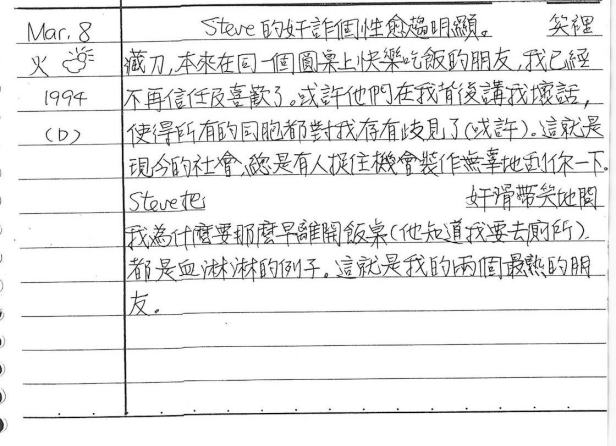 Mar. 8 Steve的奸詐個性愈趨明顯。 笑裡
火 藏刀,本來在同一個圓桌上快樂吃飯的朋友,我已經
1994 不再信任及喜歡了。或許他們在我背後講我壞話,
(b) 使得所有的同胞都對我存有歧見了(或許)。這就是
現今的社會,總是有人挺住機會裝作無辜地 你一下。
Steve把 奸滑帶笑地問
我為什麼要那麼早離開飯桌(他知道我要去廁所).
都是血淋淋的例子。這就是我的兩個最熟的朋
友。